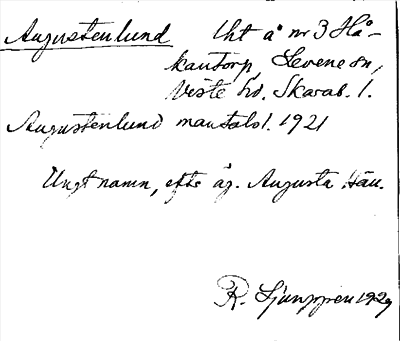 Augustenlund lht å nr 3 Hå-
kantorp Levene sn,
Viste hd. Skarab. l.
Augustenlund mantalsl. 1921
Ungt namn, efter äg. Augusta
R. Ljunggren 1929